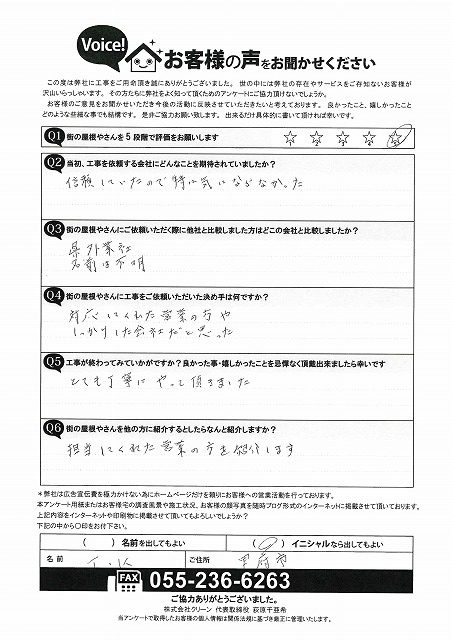 Voice!
お客様の声をお聞かせください
この度は弊社に工事をご用命頂き誠にありがとうございました。世の中には弊社の存在やサービスをご存知ないお客様が
沢山いらっしゃいます。その方たちに弊社をよく知って頂くためのアンケートにご協力頂けないでしょうか。
お客様のご意見をお聞かせいただき今後の活動に反映させていただきたいと考えております。良かったこと、嬉しかったこと
どのような些細な事でも結構です。是非ご協力お願い致します。出来るだけ具体的に書いて頂ければ幸いです。
Q1 街の屋根やさんを5段階で評価をお願いします ☆ ☆ ☆ ☆ ☆
Q2 当初、工事を依頼する会社にどんなことを期待されていましたか?
信頼していたので特に気にならなかった
Q3 街の屋根やさんにご依頼いただく際に他社と比較しました方はどこの会社と比較しましたか?
県外業社
名前は不明
Q4 街の屋根やさんに工事をご依頼いただいた決め手は何ですか?
対応してくれた営業の方や
しっかりした会社だと思った
Q5 工事が終わってみていかがですか?良かった事・嬉しかったことを忌憚なく頂戴出来ましたら幸いです
とても丁寧にやって頂きました
Q6 街の屋根やさんを他の方に紹介するとしたらなんと紹介しますか?
担当してくれた営業の方を紹介します
*弊社は広告宣伝費を極力かけない為にホームページだけを頼りにお客様への営業活動を行っております。
本アンケート用紙またはお客様宅の調査風景や施工状況、お客様の顔写真を随時ブログ形式のインターネットに掲載させて頂いております。
上記内容をインターネットや印刷物に掲載させて頂いてもよろしいでしょうか?
下記の中から〇印をお付け下さい。
( )名前を出してもよい (〇)イニシャルなら出してもよい
名前 ご住所 甲府市
FAX 055-236-6263
ご協力ありがとうございました。
株式会社クリーン 代表取締役 荻原千亜希
当アンケートで取得したお客様の個人情報は関係法規に基づき厳正に管理いたします。